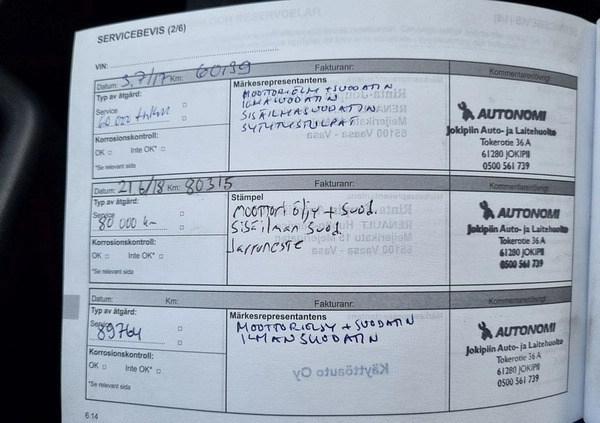 SERVICEBEVIS (2/6)
VIN:
Datum: 3.7/17 Km: 60199 Fakturanr: Kommentarer/övrigt
Typ av åtgärd:
Service
60 000 huolto
Korrosionskontroll:
OK □ Inte OK* □
*Se relevant sida
Märkesrepresentantens
MOOTTORIÖLJY + SUODATIN
ILMASUODATIN
SISÄILMASUODATIN
SYTYTYSTULPAT
AUTONOMI
Jokipiin Auto- ja Laitehuolto
Tokerotie 36 A
61280 JOKIPII
0500 561 739
Datum: 21 6/18 Km: 80315 Fakturanr: Kommentarer/övrigt
Typ av åtgärd:
Service
80 000 km
Korrosionskontroll:
OK □ Inte OK* □
*Se relevant sida
Stämpel
Moottori öljy + suod.
Sisäilman suod.
Jarruneste
AUTONOMI
Jokipiin Auto- ja Laitehuolto
Tokerotie 36 A
61280 JOKIPII
0500 561 739
Datum: Km: Fakturanr: Kommentarer/övrigt
Typ av åtgärd:
Service
89764
Korrosionskontroll:
OK □ Inte OK* □
*Se relevant sida
Märkesrepresentantens
MOOTTORIÖLJY + SUODATIN
ILMANSUODATIN
Käyttöauto Oy
AUTONOMI
Jokipiin Auto- ja Laitehuolto
Tokerotie 36 A
61280 JOKIPII
0500 561 739
6.14